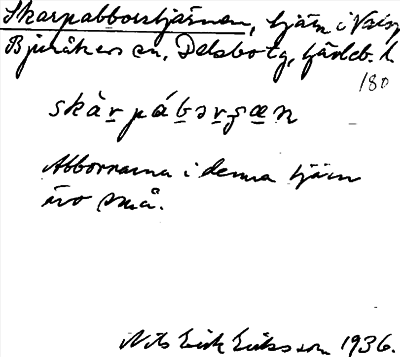 Skarpabborrtjärnen, tjärn i
Bjuråkers sn, Delsbo tg, Gävleb. l
180
skàrpábərʂæn
Abborrarna i denna tjärn
äro små.
Nils Erik Eriksson 1936.